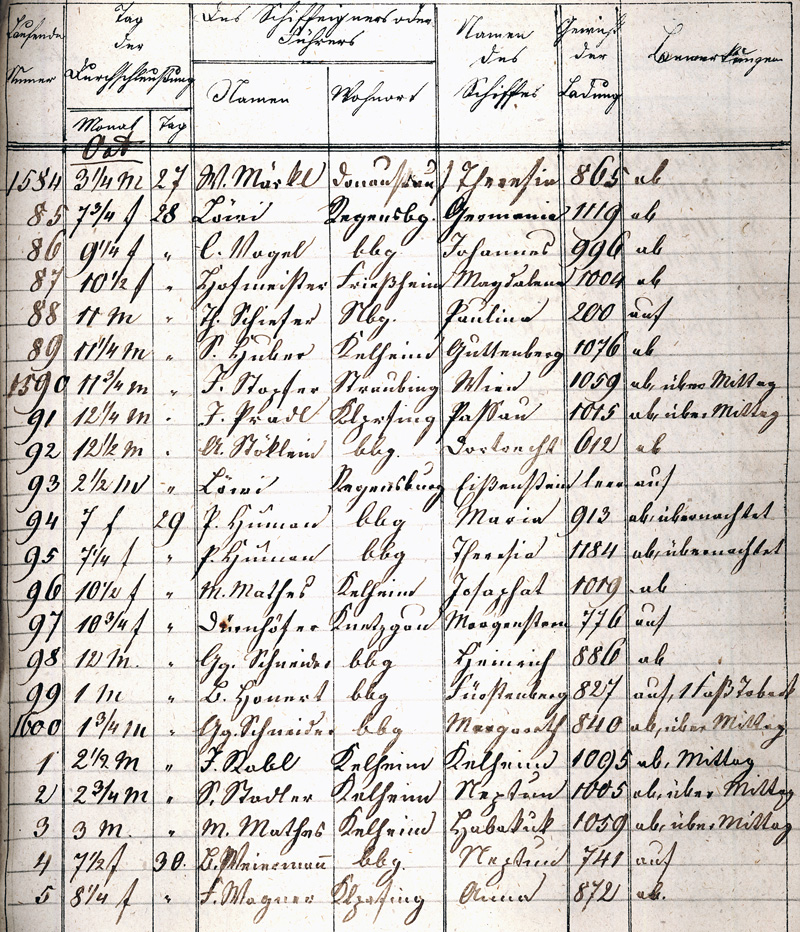 Laufende Numer | Tag der Durchschleußung | Des Schiffeigners oder Führers | Namen des Schiffes | Gewicht der Ladung | Bemerkungen
Monat | Tag | Namen | Wohnort
Oct
1584 3¼ M 27 W. Märkl Donaustauf Theresia 865 ab
85 7¾ f 28 Löwi Regensbg. Germania 1119 ab
86 9¼ f " C. Vogel bbg Johannes 996 ab
87 10½ f " Hofmeister Frießheim Magdalena 1004 ab
88 11 M " Th. Schiefer Nbg. Paulina 200 auf
89 11¼ M " S. Huber Kelheim Guttenberg 1076 ab
1590 11¾ M " J. Stopfer Straubing Wien 1059 ab, über Mittag
91 12¼ M " J. Pradl Passau 1015 ab, über Mittag
92 12½ M " A. Stöklein bbg. Dortrecht 612 ab
93 2½ M " Löwi Regensburg Eißenstein leer auf
94 7 f 29 P. Human bbg Maria 913 ab, übernachtet
95 7¼ f " P. Human bbg Theresia 1184 ab, übernachtet
96 10½ f " M. Mathes Kelheim Josaphat 1019 ab
97 10¾ f " Dürnhöfer Knetzgau Morgenstern 776 auf
98 12 M. " Gg. Schneider bbg Heinrich 886 ab
99 1 M " B. Honert bbg Fürstenberg 827 auf, 1 Faß Taback
1600 1¾ M " Gg. Schneider bbg Margareth 840 ab, über Mittag
1 2½ M " J. Rabl Kelheim Kelheim 1095 ab, Mittag
2 2¾ M " S. Stadler Kelheim Neptun 1005 ab, über Mittag
3 3 M. " M. Mathes Kelheim Habakuk 1059 ab, über Mittag
4 7½ f 30. B. Weiermañ bbg. Neptun 741 auf
5 8¼ f " F. Wagner Anna 872 ab.